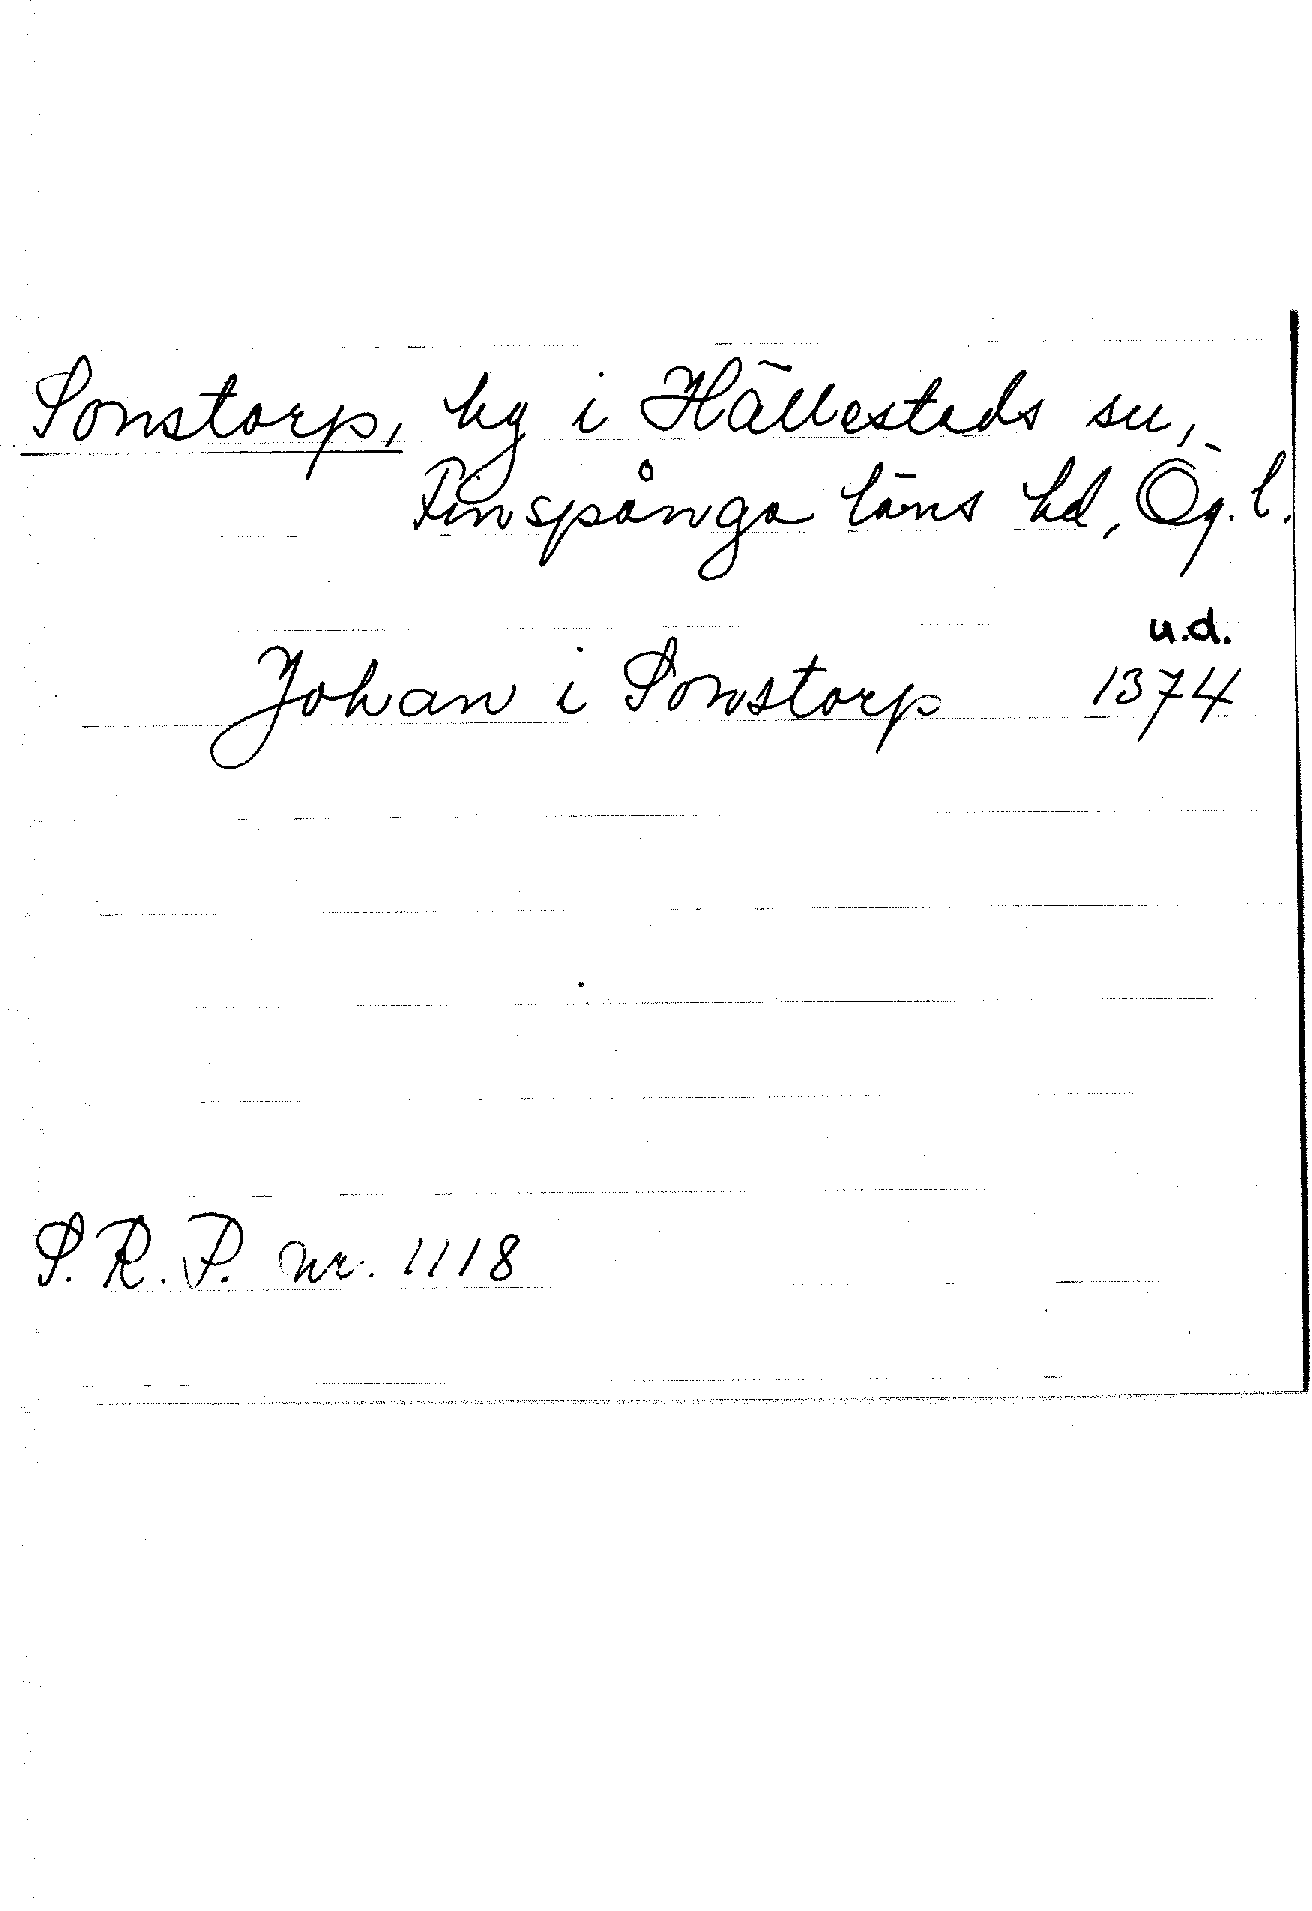 Sonstorp, hg i Hällestads sn,
Finspånga läns hd, Ög. l.
u.d.
Johan i Sonstorp 1374
S. R. P. nr. 1118